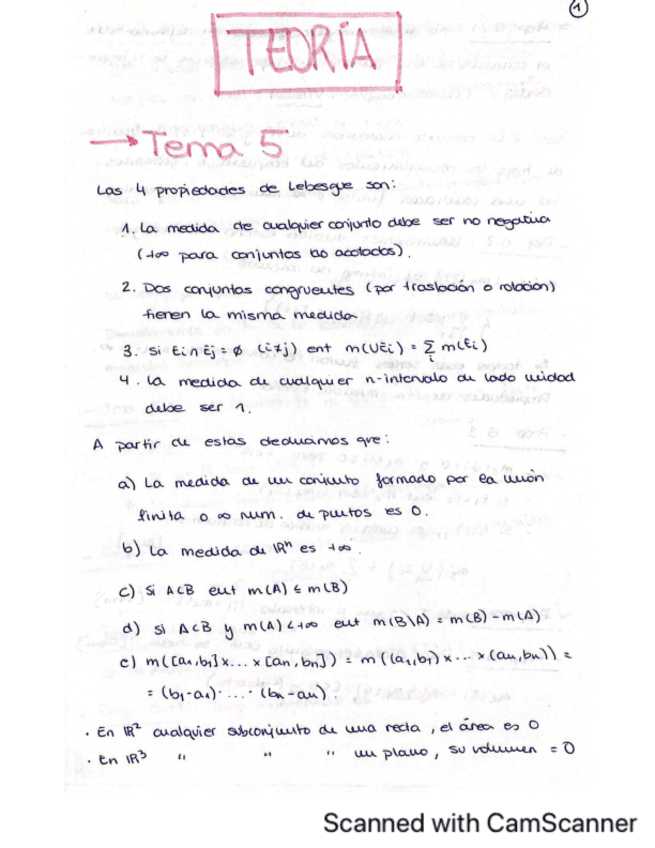 1
TEORÍA
→ Tema 5
Las 4 propiedades de Lebesgue son:
1. La medida de cualquier conjunto debe ser no negativa
(+∞ para conjuntos no acotados).
2. Dos conjuntos congruentes (por traslación o rotación)
tienen la misma medida
3. Si Ei ∩ Ej = ∅ (i≠j) ent m(UEi) = Σ m(Ei)
i
4. La medida de cualquier n-intervalo de lado unidad
debe ser 1.
A partir de estas deducimos que:
a) La medida de un conjunto formado por la unión
finita o ∞ num. de puntos es 0.
b) La medida de ℝⁿ es +∞.
c) Si A⊂B ent m(A) ≤ m(B)
d) Si A⊂B y m(A)<+∞ ent m(B\A) = m(B) - m(A)
e) m([a₁,b₁]x...x[an,bn]) = m((a₁,b₁)x...x(an,bn)) =
= (b₁-a₁)· ... ·(bn-an).
· En ℝ² cualquier subconjunto de una recta, el área es 0
· En ℝ³ " " " un plano, su volumen = 0
Scanned with CamScanner